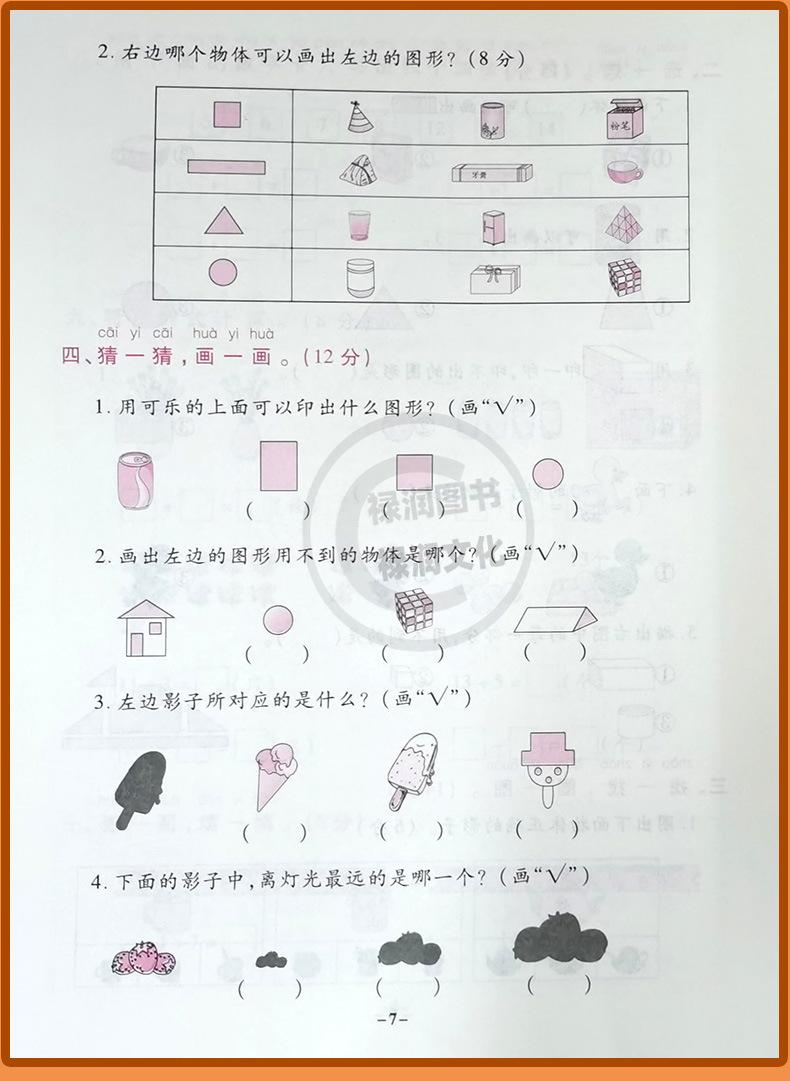 2. 右边哪个物体可以画出左边的图形？(8 分)
粉笔
牙膏
cāi yi cāi huà yi huà
四、猜一猜，画一画。(12 分)
1. 用可乐的上面可以印出什么图形？(画“√”)
( ) ( ) ( )
2. 画出左边的图形用不到的物体是哪个？(画“√”)
( ) ( ) ( )
3. 左边影子所对应的是什么？(画“√”)
( ) ( ) ( )
4. 下面的影子中，离灯光最远的是哪一个？(画“√”)
( ) ( ) ( )
-7-
禄润图书
禄润文化